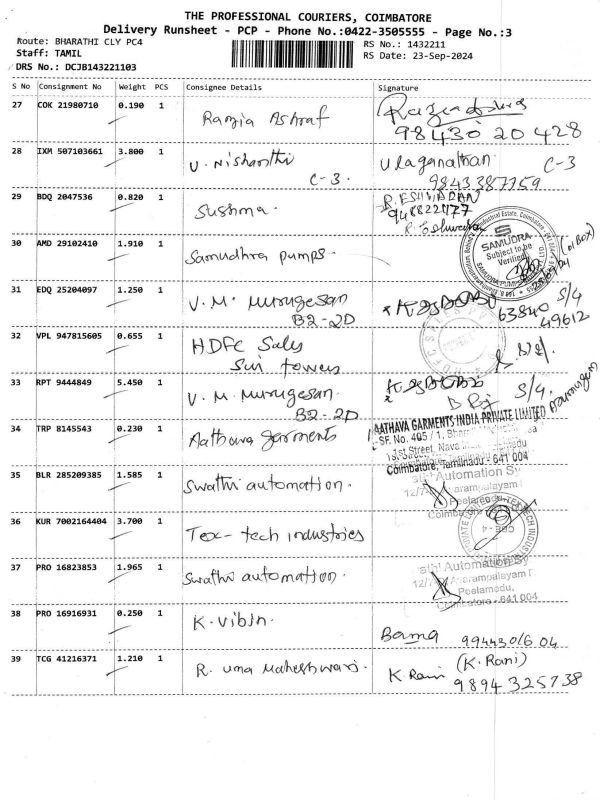 THE PROFESSIONAL COURIERS, COIMBATORE
Delivery Runsheet - PCP - Phone No.:0422-3505555 - Page No.:3
Route: BHARATHI CLY PC4
RS No.: 1432211
Staff: TAMIL
RS Date: 23-Sep-2024
DRS No.: DCJB143221103
S No Consignment No Weight PCS Consignee Details Signature
27 COK 21980710 0.190 1 Razia Ashraf
98430 20 428
28 IXM 507103661 3.800 1 V. Nishanthi Ulaganathan C-3
C-3. 9843387759
29 BDQ 2047536 0.820 1 Sushma.
30 AMD 29102410 1.910 1 Samudhra pumps.
SAMUDRA
Subject to be
Verified
31 EDQ 25204097 1.250 1 V. M. Murugesan S/4
B2-2D 63840 49612
32 VPL 947815605 0.655 1 HDFC Sales
Sri towers
33 RPT 9444849 5.450 1 V. M. Murugesan. S/4.
B2-2D
34 TRP 8145543 0.230 1 Aathava garments
AATHAVA GARMENTS INDIA PRIVATE LIMITED
SF. No. 405 / 1,
Street, Nava
Coimbatore, Tamilnadu - 641 004
35 BLR 285209385 1.585 1 Swathi automation.
Automation Sy
12/7
Peelamedu
Coimbatore
36 KUR 7002164404 3.700 1 Tex-tech industries
37 PRO 16823853 1.965 1 Swathi automation.
Automation Sy
12/7
Peelamedu,
641 004
38 PRO 16916931 0.250 1 K. Vibin.
Bama 994430/6 04
39 TCG 41216371 1.210 1 R. Uma Maheshwari. K. Rani (K. Rani)
9894 325738